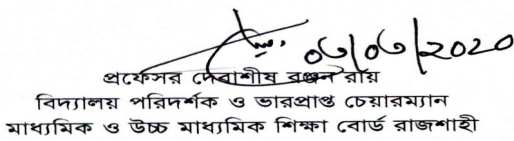 ০৩/০৩/২০২০
প্রফেসর দেবাশীষ রঞ্জন রায়
বিদ্যালয় পরিদর্শক ও ভারপ্রাপ্ত চেয়ারম্যান
মাধ্যমিক ও উচ্চ মাধ্যমিক শিক্ষা বোর্ড রাজশাহী